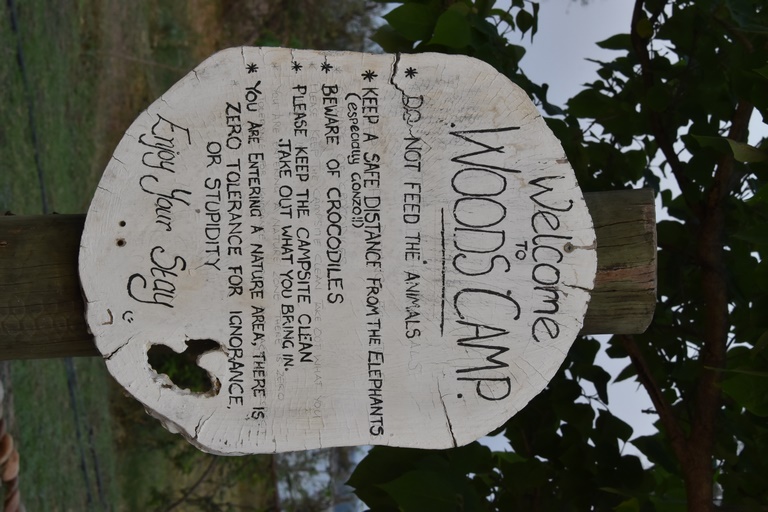 Welcome
TO
WOODS CAMP.
* DO NOT FEED THE ANIMALS
* KEEP A SAFE DISTANCE FROM THE ELEPHANTS
(especially GONZO!!)
* BEWARE OF CROCODILES
* PLEASE KEEP THE CAMPSITE CLEAN
TAKE OUT WHAT YOU BRING IN.
* YOU ARE ENTERING A NATURE AREA, THERE IS
ZERO TOLERANCE FOR IGNORANCE,
OR STUPIDITY
Enjoy Your Stay